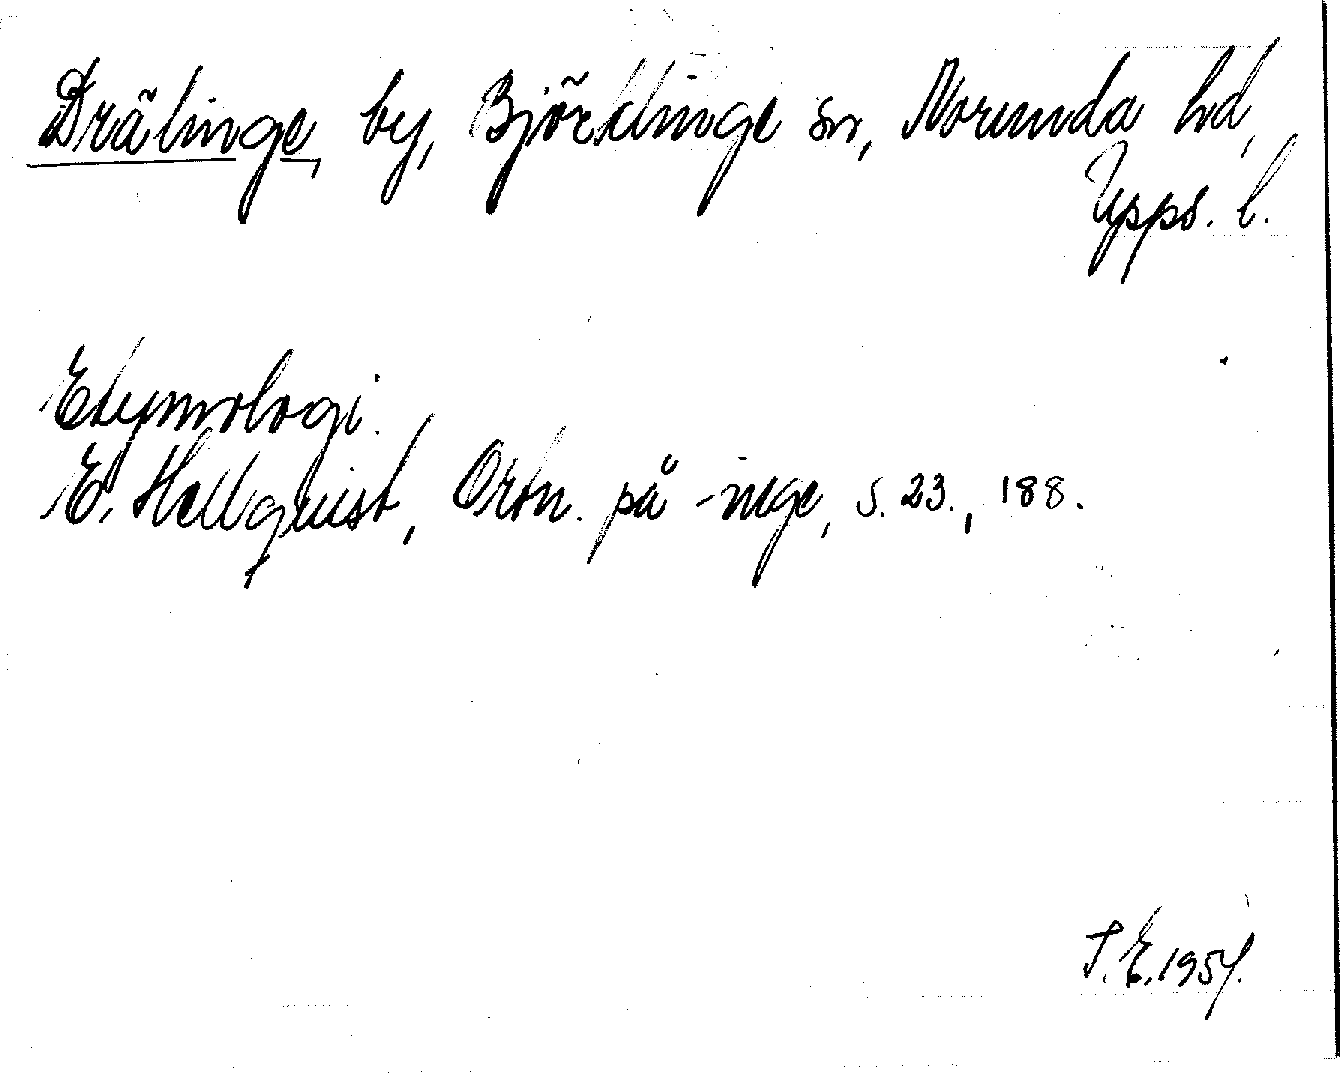 Drälinge, by, Björklinge sn, Norunda hd,
Upps. l.
Etymologi.
E. Hellquist, Ortn. på -inge, s. 23., 188.
T.E. 1954.